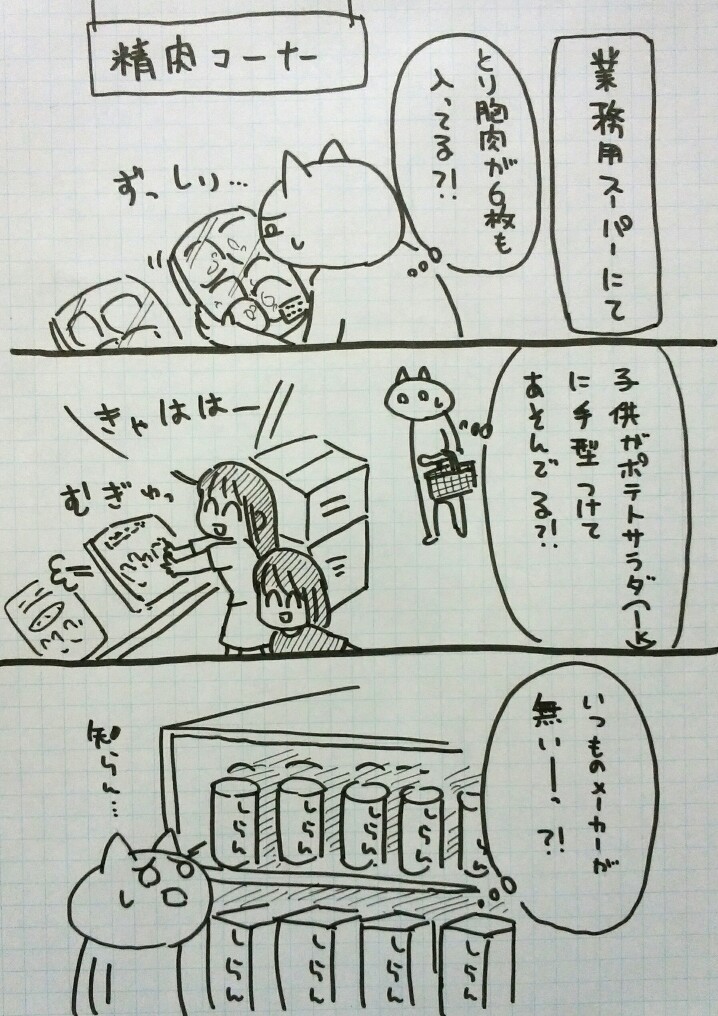 業務用スーパーにて
精肉コーナー
とり胸肉が6枚も
入ってる?!
ずっしり…
子供がポテトサラダ(1k)
に手型つけて
あそんでる?!
きゃははー
むぎゅっ
いつものメーカーが
無いーっ?!
知らん…
しらん
しらん
しらん
しらん
し
しらん
しらん
しらん
しらん